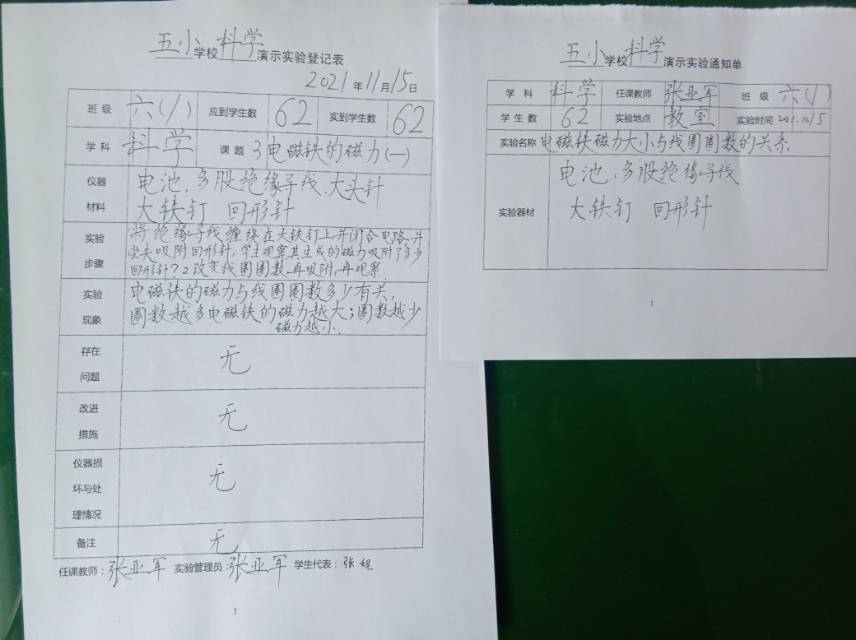 五小学校科学演示实验登记表
2021年11月15日
班级 六(1) 应到学生数 62 实到学生数 62
学科 科学 课题 3电磁铁的磁力(一)
仪器材料 电池、多股绝缘导线、大头针
大铁钉 回形针
实验步骤 将绝缘导线缠绕在大铁钉上并闭合电路,并
尝去吸附回形针,学生观察其生成的磁力吸附了多少
回形针?2改变线圈圈数,再吸附,再观察
实验现象 电磁铁的磁力与线圈圈数多少有关,
圈数越多电磁铁的磁力越大;圈数越少
磁力越小.
存在问题 无
改进措施 无
仪器损坏与处理情况 无
备注 无
任课教师:张亚军 实验管理员:张亚军 学生代表:张
3
五小学校科学演示实验通知单
学科 科学 任课教师 张亚军 班级 六(1)
学生数 62 实验地点 教室 实验时间
实验名称 电磁铁磁力大小与线圈圈数的关系
实验器材 电池、多股绝缘导线
大铁钉 回形针
1